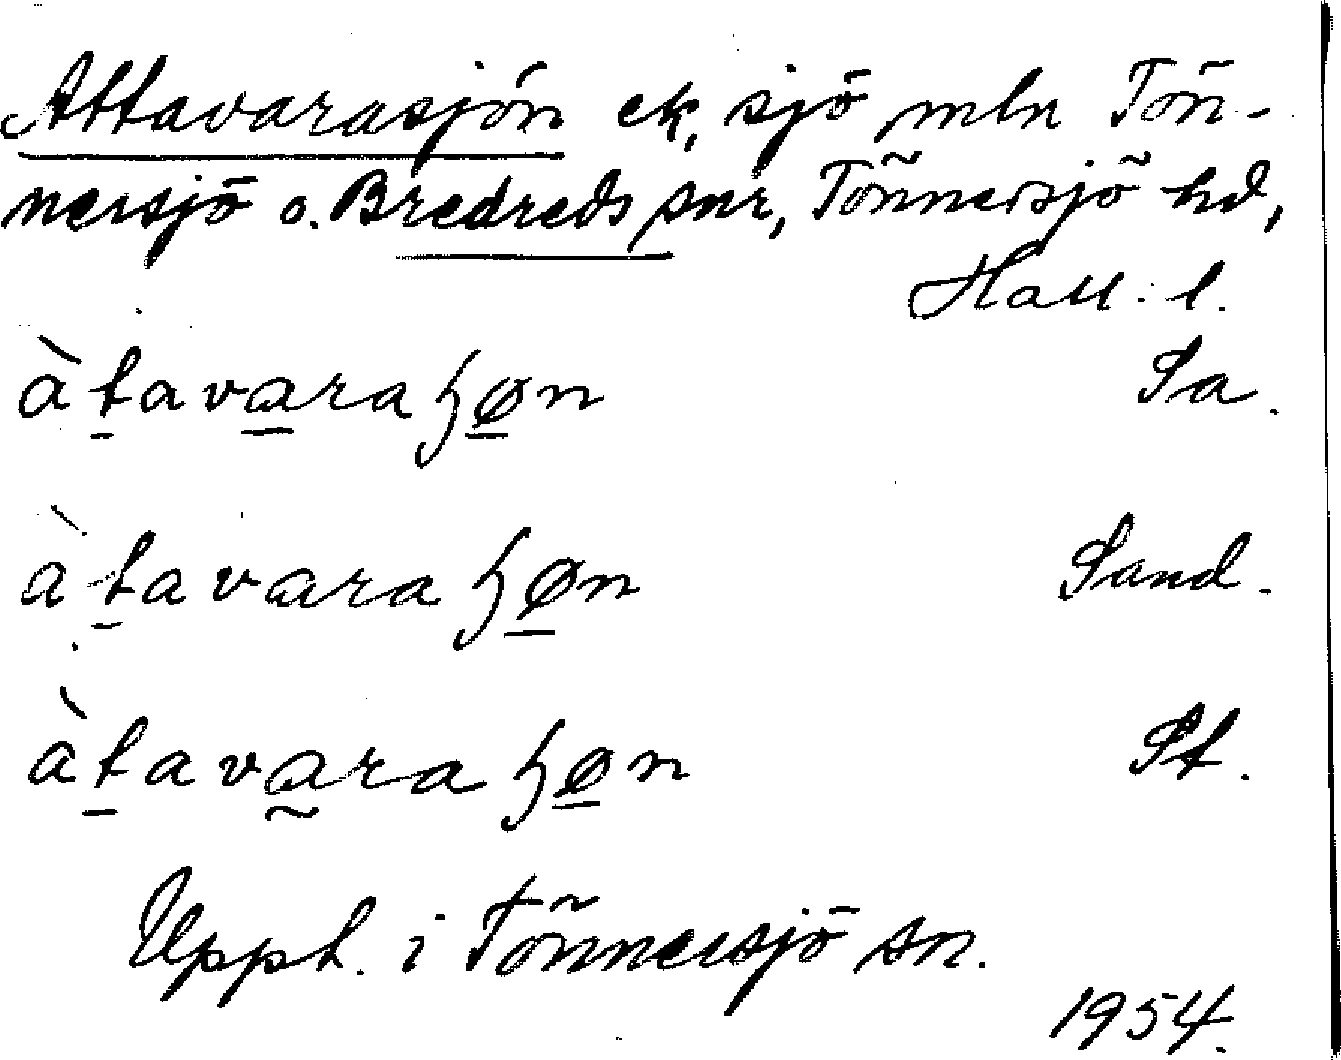 Attavarasjön ek, sjö mln Tön-
nersjö o. Breareds snr, Tönnersjö hd,
Hall. l.
àtavaraɧøn Sa.
àtavaraɧøn Sand.
àtavaraɧøn St.
Uppt. i Tönnersjö sn.
1954.